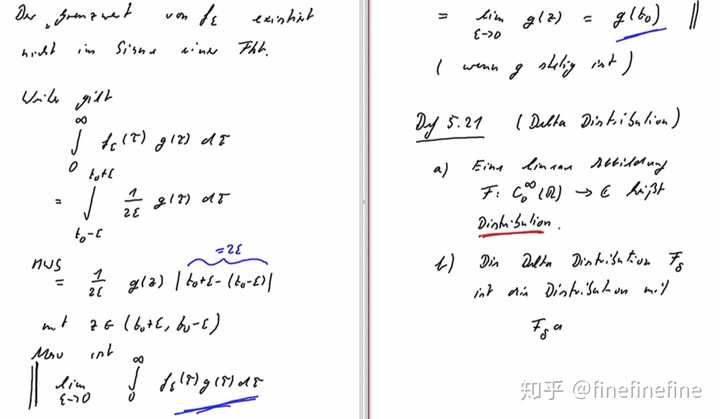 Der "Grenzwert von f_ε existiert
nicht im Sinne einer Fkt.
Weiter gilt
∫_0^∞ f_ε(τ) g(τ) dτ
= ∫_{t_0-ε}^{t_0+ε} 1/2ε g(τ) dτ
MWS = 1/2ε g(z) |t_0+ε-(t_0-ε)| =2ε
mit z ∈ (t_0+ε, t_0-ε)
Also ist
lim_{ε→0} ∫_0^∞ f_ε(τ) g(τ) dτ
= lim_{ε→0} g(z) = g(t_0)
( wenn g stetig ist )
Def 5.21 (Delta Distribution)
a) Eine lineare Abbildung
F: C_0^∞(ℝ) → ℂ heißt
Distribution.
b) Die Delta Distribution F_δ
ist die Distribution mit
F_δ
知乎 @finefinefine